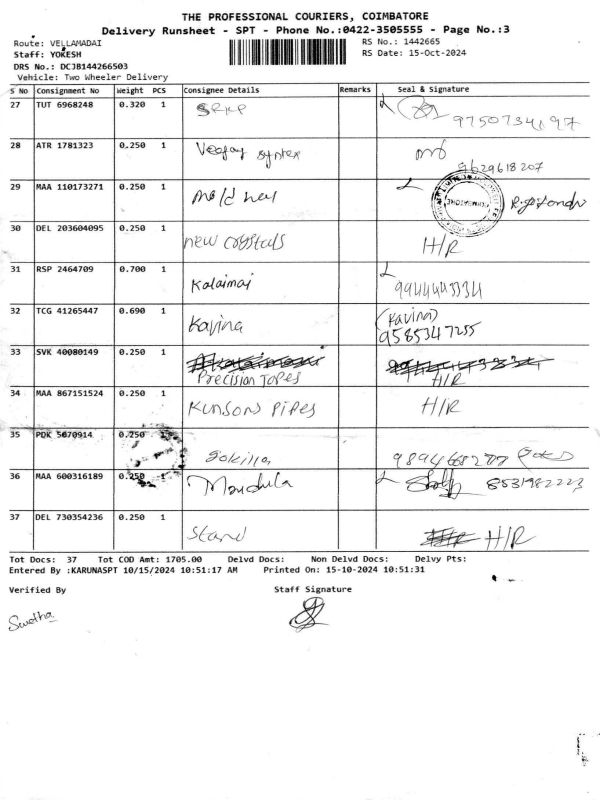 THE PROFESSIONAL COURIERS, COIMBATORE
Delivery Runsheet - SPT - Phone No.:0422-3505555 - Page No.:3
Route: VELLAMADAI
RS No.: 1442665
Staff: YOKESH
RS Date: 15-Oct-2024
DRS No.: DCJB144266503
Vehicle: Two Wheeler Delivery
S No Consignment No Weight PCS Consignee Details Remarks Seal & Signature
27 TUT 6968248 0.320 1 SRKP
28 ATR 1781323 0.250 1 Veejay syntex 9629618207
29 MAA 110173271 0.250 1
30 DEL 203604095 0.250 1 new crystals H/R
31 RSP 2464709 0.700 1 Kalaimai
32 TCG 41265447 0.690 1 Kavina (Kavina)
9585347255
33 SVK 40080149 0.250 1 Precision Tapes H/R
34 MAA 867151524 0.250 1 Kunsons Pipes H/R
35 PDK 5670914 0.250 Gokilla
36 MAA 600316189 0.250 1 8531982223
37 DEL 730354236 0.250 1 Stand H/R
Tot Docs: 37 Tot COD Amt: 1705.00 Delvd Docs: Non Delvd Docs: Delvy Pts:
Entered By :KARUNASPT 10/15/2024 10:51:17 AM Printed On: 15-10-2024 10:51:31
Verified By Staff Signature
Swetha